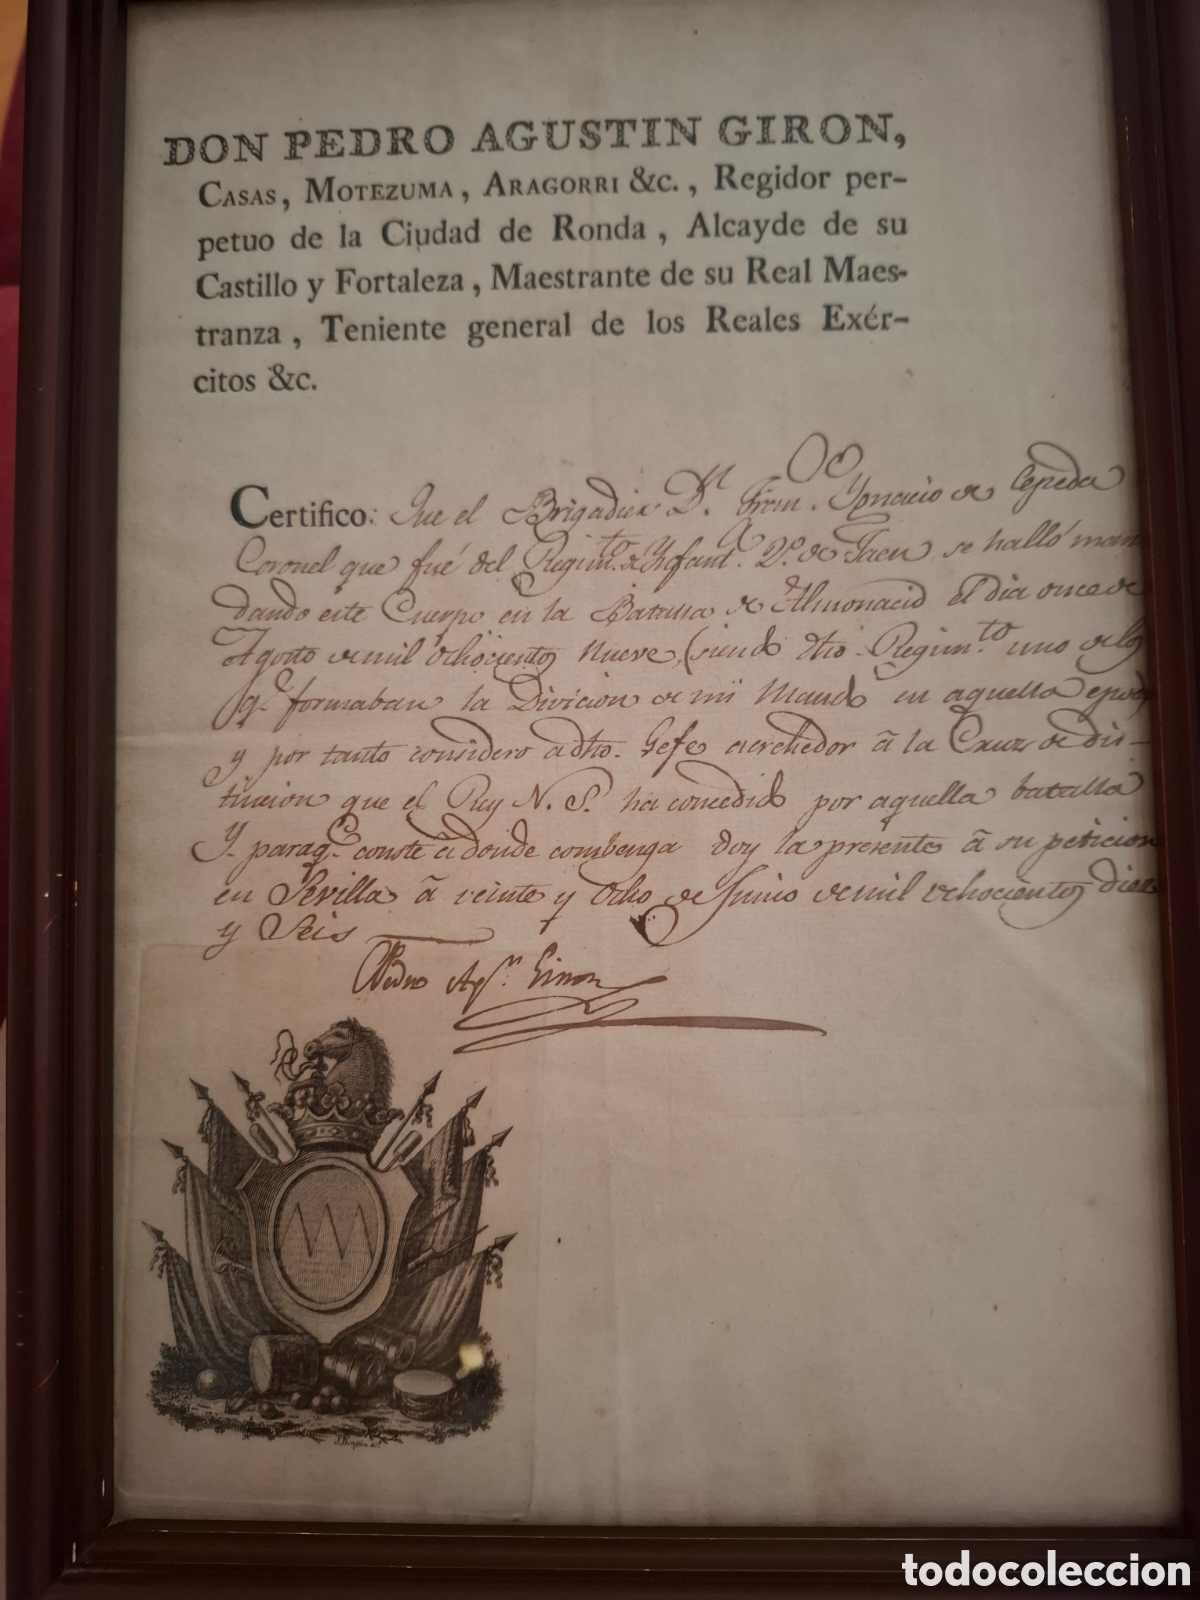 DON PEDRO AGUSTIN GIRON,
CASAS, MOTEZUMA, ARAGORRI &c., Regidor per-
petuo de la Ciudad de Ronda, Alcayde de su
Castillo y Fortaleza, Maestrante de su Real Maes-
tranza, Teniente general de los Reales Exér-
citos &c.
Certifico: Que el Brigadier Dn. Ygnacio de Cepeda
Coronel que fué del Regimto. de Ynfanta. 2º. de Jaen, se halló man
dando este Cuerpo en la Batalla de Almonacid el dia once de
Agosto de mil ochocientos nueve, (siendo dho. Regimto. uno de los
qe. formaban la Division de mi Mando en aquella epoca
y por tanto considero a dho. Gefe acrehedor á la Cruz de dis-
tincion que el Rey N. S. ha concedido por aquella batalla
Y paraqe. conste á donde combenga doy la presente á su peticion
en Sevilla á veinte y ocho de Junio de mil ochocientos diez
y Seis
Pedro Agn. Giron
todocoleccion